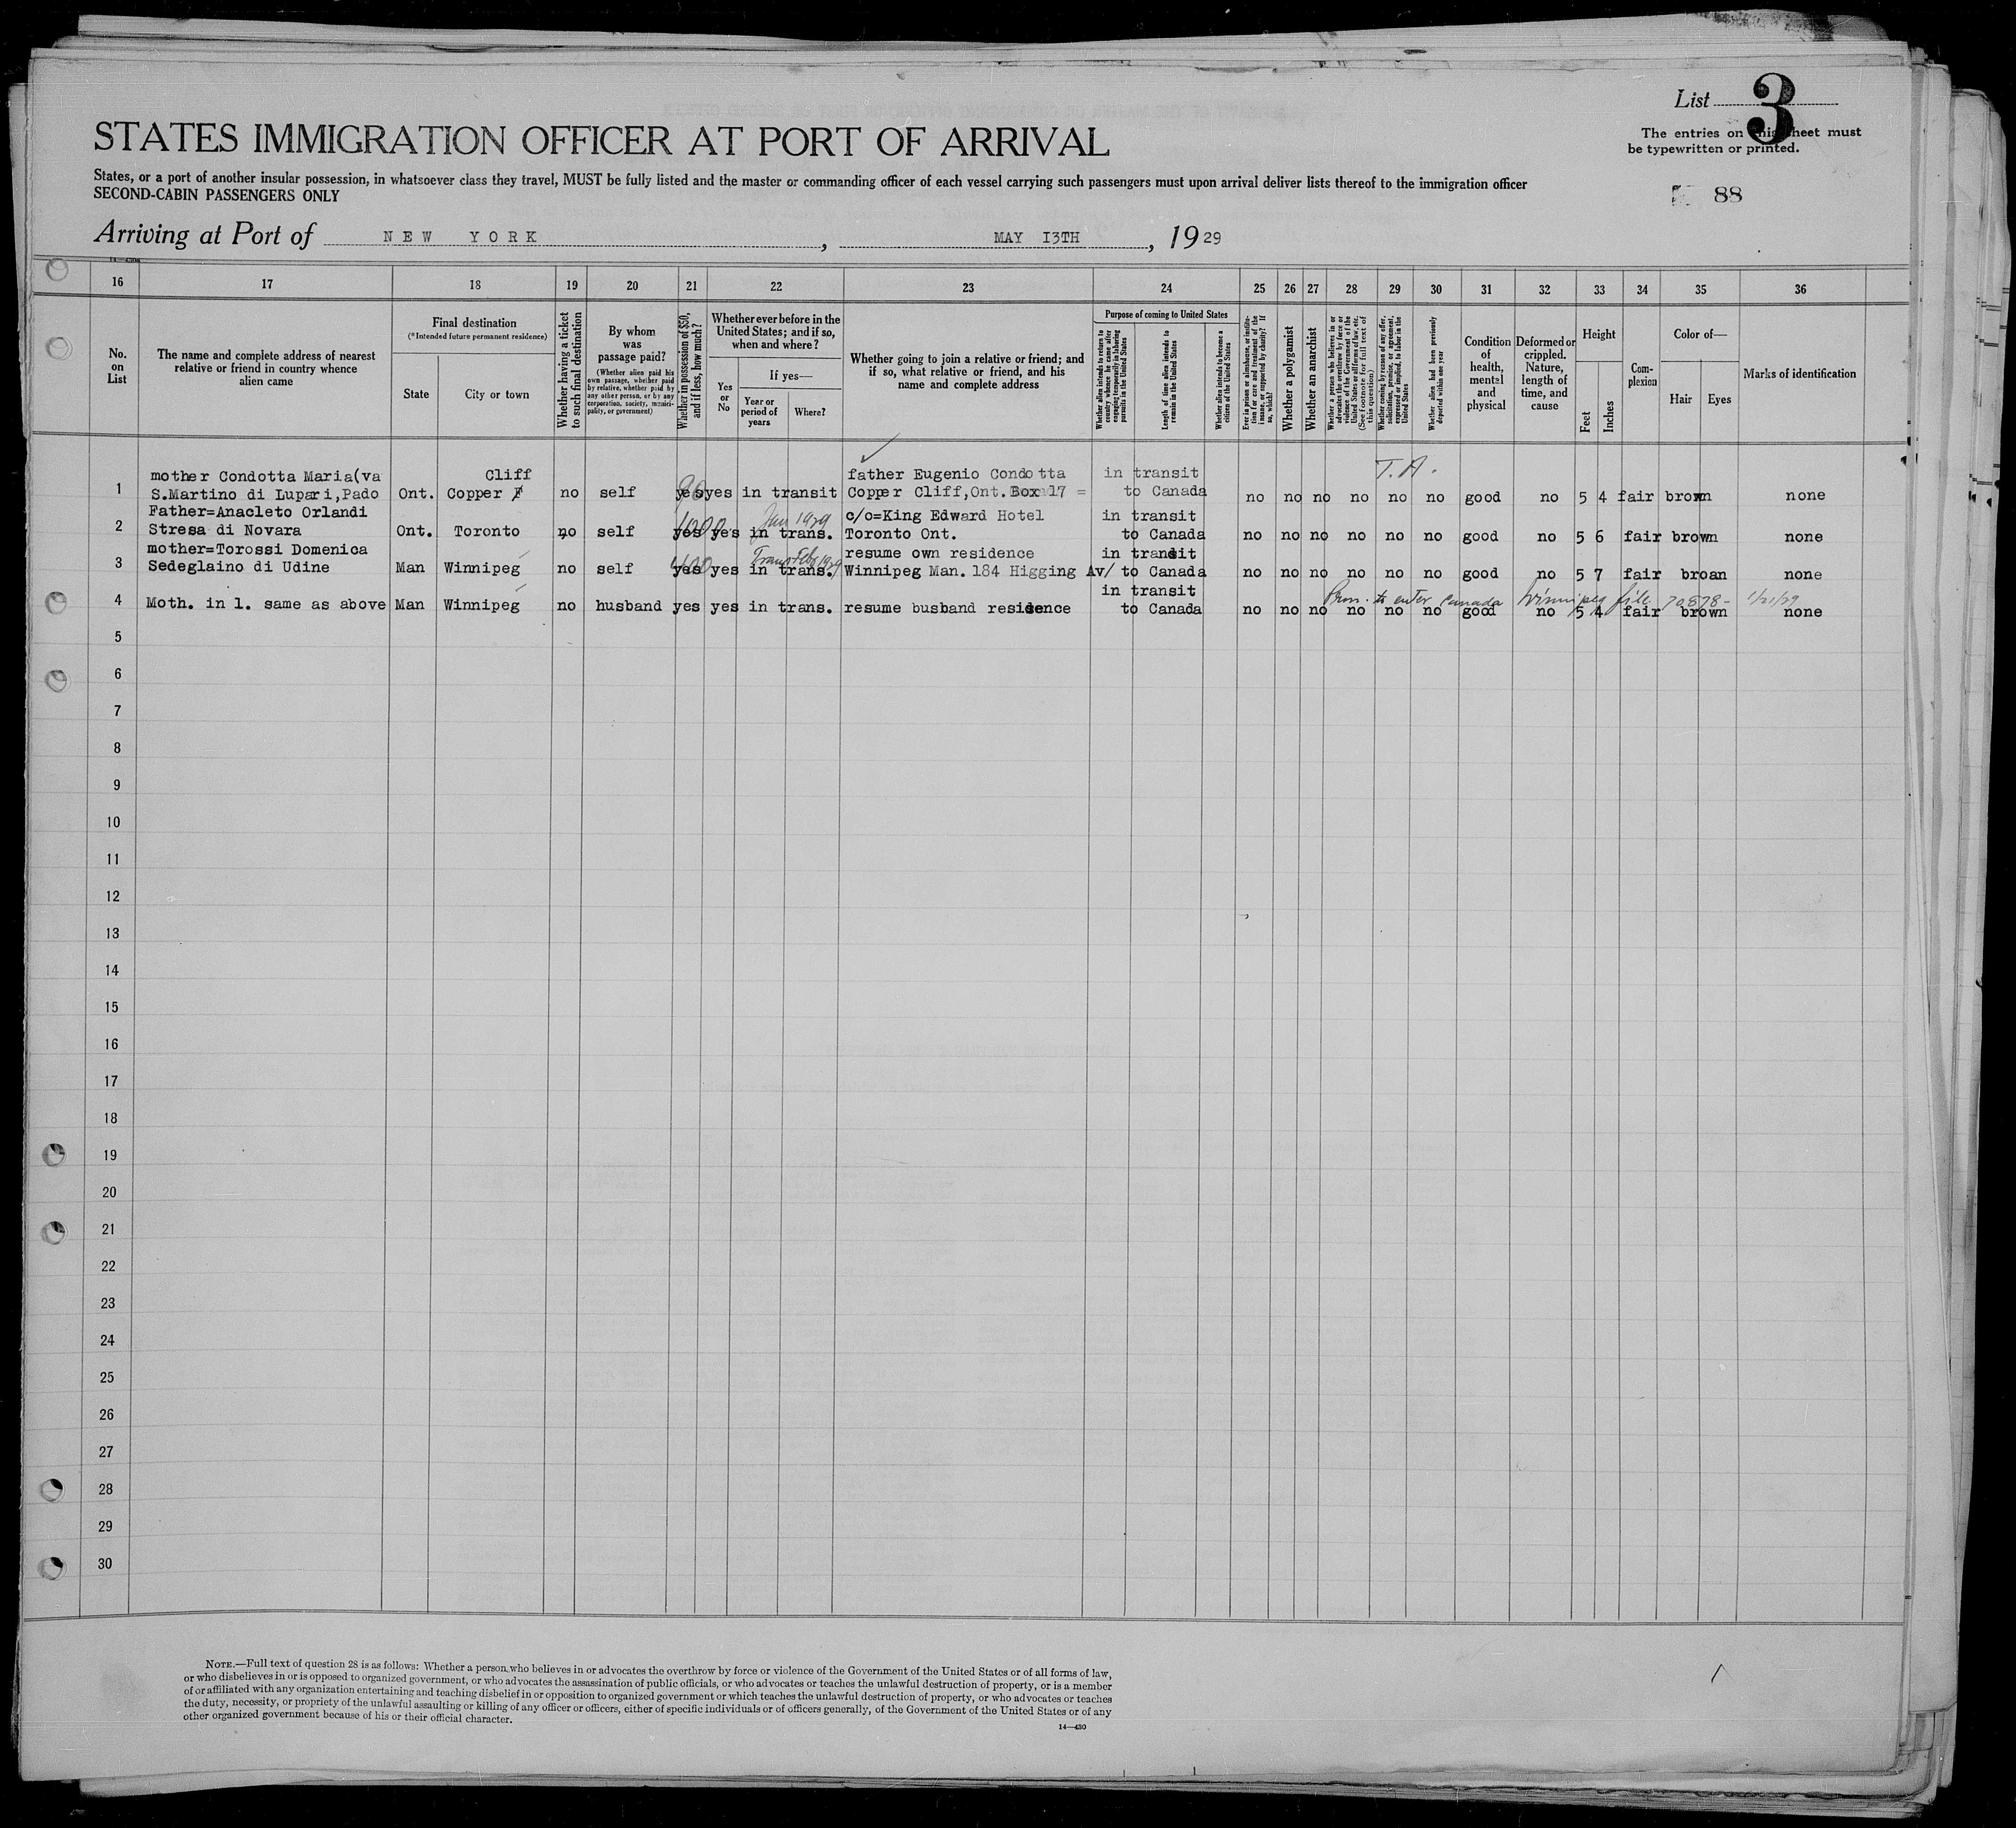 List 3
The entries on this sheet must
be typewritten or printed.
STATES IMMIGRATION OFFICER AT PORT OF ARRIVAL
States, or a port of another insular possession, in whatsoever class they travel, MUST be fully listed and the master or commanding officer of each vessel carrying such passengers must upon arrival deliver lists thereof to the immigration officer
SECOND-CABIN PASSENGERS ONLY
88
Arriving at Port of NEW YORK, MAY I3TH, 1929
16 17 18 19 20 21 22 23 24 25 26 27 28 29 30 31 32 33 34 35 36
No. on List
The name and complete address of nearest relative or friend in country whence alien came
Final destination
(*Intended future permanent residence)
State
City or town
Whether having a ticket to such final destination
By whom was passage paid?
(Whether alien paid his own passage, whether paid by relative, whether paid by any other person, or by any corporation, society, municipality, or government)
Whether in possession of $50, and if less, how much?
Whether ever before in the United States; and if so, when and where?
Yes or No
If yes—
Year or period of years
Where?
Whether going to join a relative or friend; and if so, what relative or friend, and his name and complete address
Purpose of coming to United States
Whether alien intends to return to country whence he came after engaging temporarily in laboring pursuits in the United States
Length of time alien intends to remain in the United States
Whether alien intends to become a citizen of the United States
Ever in prison or almshouse, or institution for care and treatment of the insane, or supported by charity? If so, which?
Whether a polygamist
Whether an anarchist
Whether a person who believes in or advocates the overthrow by force or violence of the Government of the United States or all forms of law, etc. (See footnote for full text of this question)
Whether coming by reason of any offer, solicitation, promise, or agreement, expressed or implied, to labor in the United States
Whether alien had been previously deported within one year
Condition of health, mental and physical
Deformed or crippled. Nature, length of time, and cause
Height
Feet
Inches
Complexion
Color of—
Hair
Eyes
Marks of identification
T.A.
mother Condotta Maria(va Cliff father Eugenio Condotta in transit
1 S.Martino di Lupari,Pado Ont. Copper no self yes yes in transit Copper Cliff,Ont. Box 17 = to Canada no no no no no no good no 5 4 fair brown none
Father=Anacleto Orlandi Jan 1929 c/o=King Edward Hotel in transit
2 Stresa di Novara Ont. Toronto no self yes yes in trans. Toronto Ont. to Canada no no no no no no good no 5 6 fair brown none
mother=Torossi Domenica Feb 1929 resume own residence in transit
3 Sedeglaino di Udine Man Winnipeg no self yes yes in trans. Winnipeg Man. 184 Higging Av/ to Canada no no no no no no good no 5 7 fair broan none
in transit Perm. to enter Canada Winnipeg file 70878- 1/21/29
4 Moth. in l. same as above Man Winnipeg no husband yes yes in trans. resume busband residence to Canada no no no no no no good no 5 4 fair brown none
5
6
7
8
9
10
11
12
13
14
15
16
17
18
19
20
21
22
23
24
25
26
27
28
29
30
NOTE.—Full text of question 28 is as follows: Whether a person who believes in or advocates the overthrow by force or violence of the Government of the United States or of all forms of law,
or who disbelieves in or is opposed to organized government, or who advocates the assassination of public officials, or who advocates or teaches the unlawful destruction of property, or is a member
of or affiliated with any organization entertaining and teaching disbelief in or opposition to organized government or which teaches the unlawful destruction of property, or who advocates or teaches
the duty, necessity, or propriety of the unlawful assaulting or killing of any officer or officers, either of specific individuals or of officers generally, of the Government of the United States or of any
other organized government because of his or their official character.
14—430